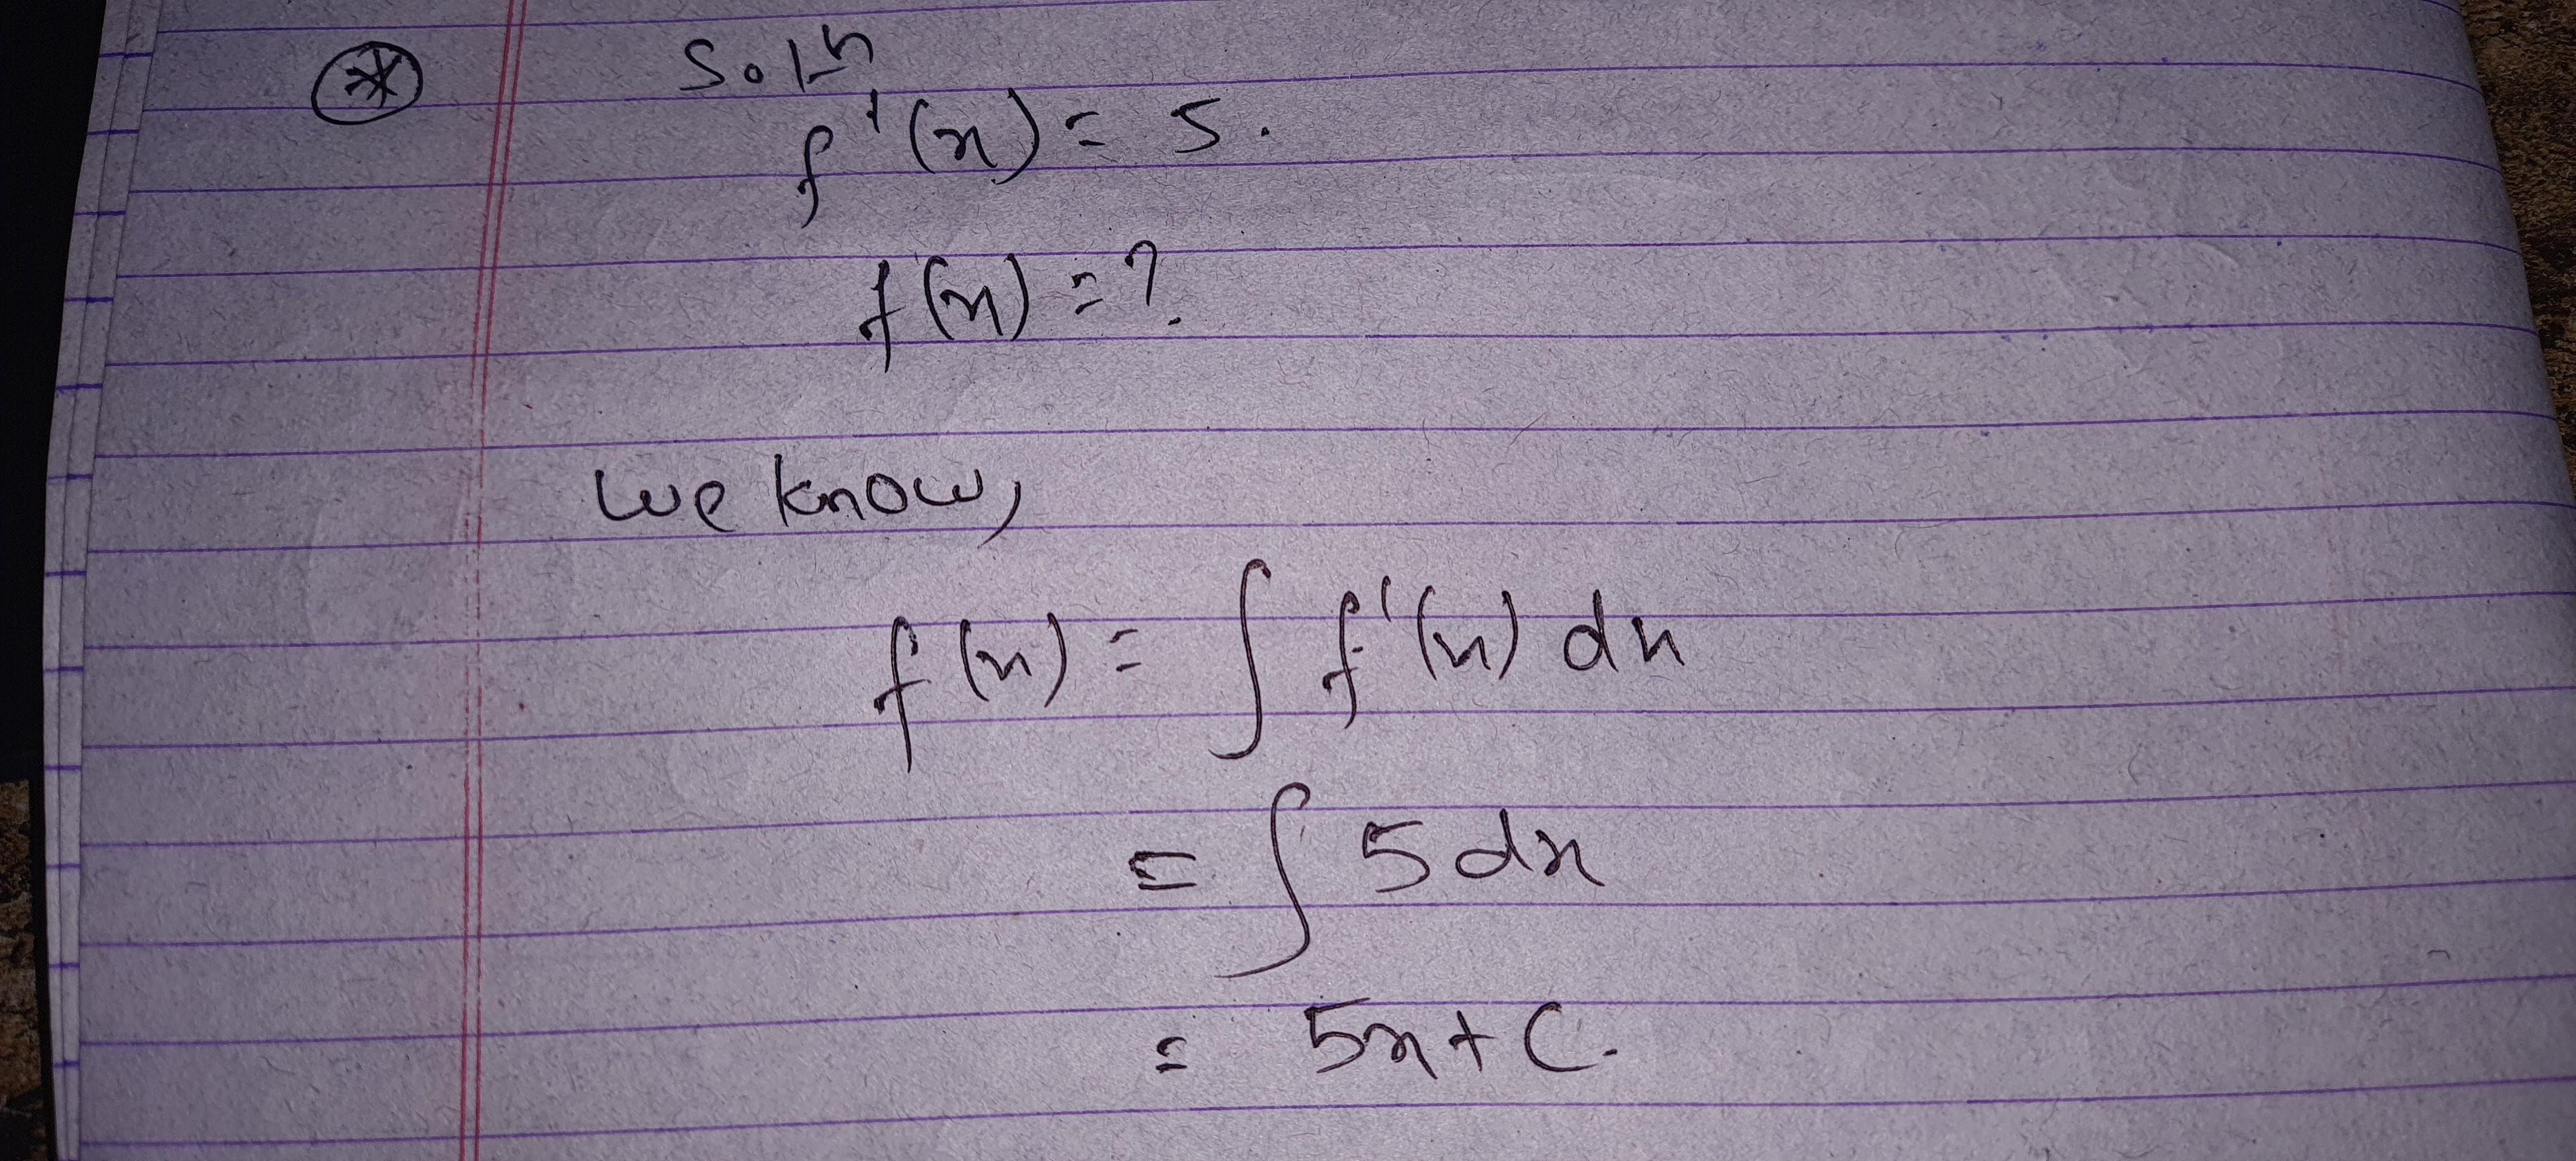 * Soln
f'(x) = 5.
f(x) = ?
we know,
f(x) = ∫ f'(x) dx
= ∫ 5 dx
= 5x + C.